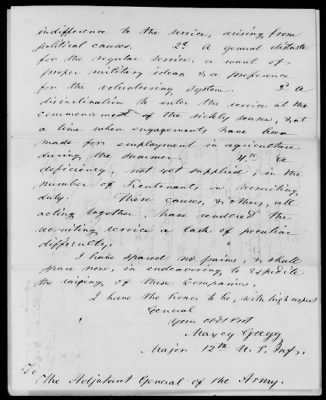 indifference to the service, arising from
political causes. 2d A general distaste
for the regular service, a want of
proper military ideas & a preference
for the volunteering system. 3d a
disinclination to enter the service at the
commencement of the sickly season, & at
a time when engagements have been
made for employment in agriculture
during the summer. 4th a
deficiency, not yet supplied, in the
number of Lieutenants on recruiting
duty. These causes, & others, all
acting together, have rendered the
recruiting service a task of peculiar
difficulty.
I have spared no pains, & shall
spare none, in endeavoring to expedite
the raising of these companies.
I have the honor to be, with high respect
General
Your obdt svt
Maxcy Gregg
Major 12th U. S. Inf.
To
The Adjutant General of the Army.